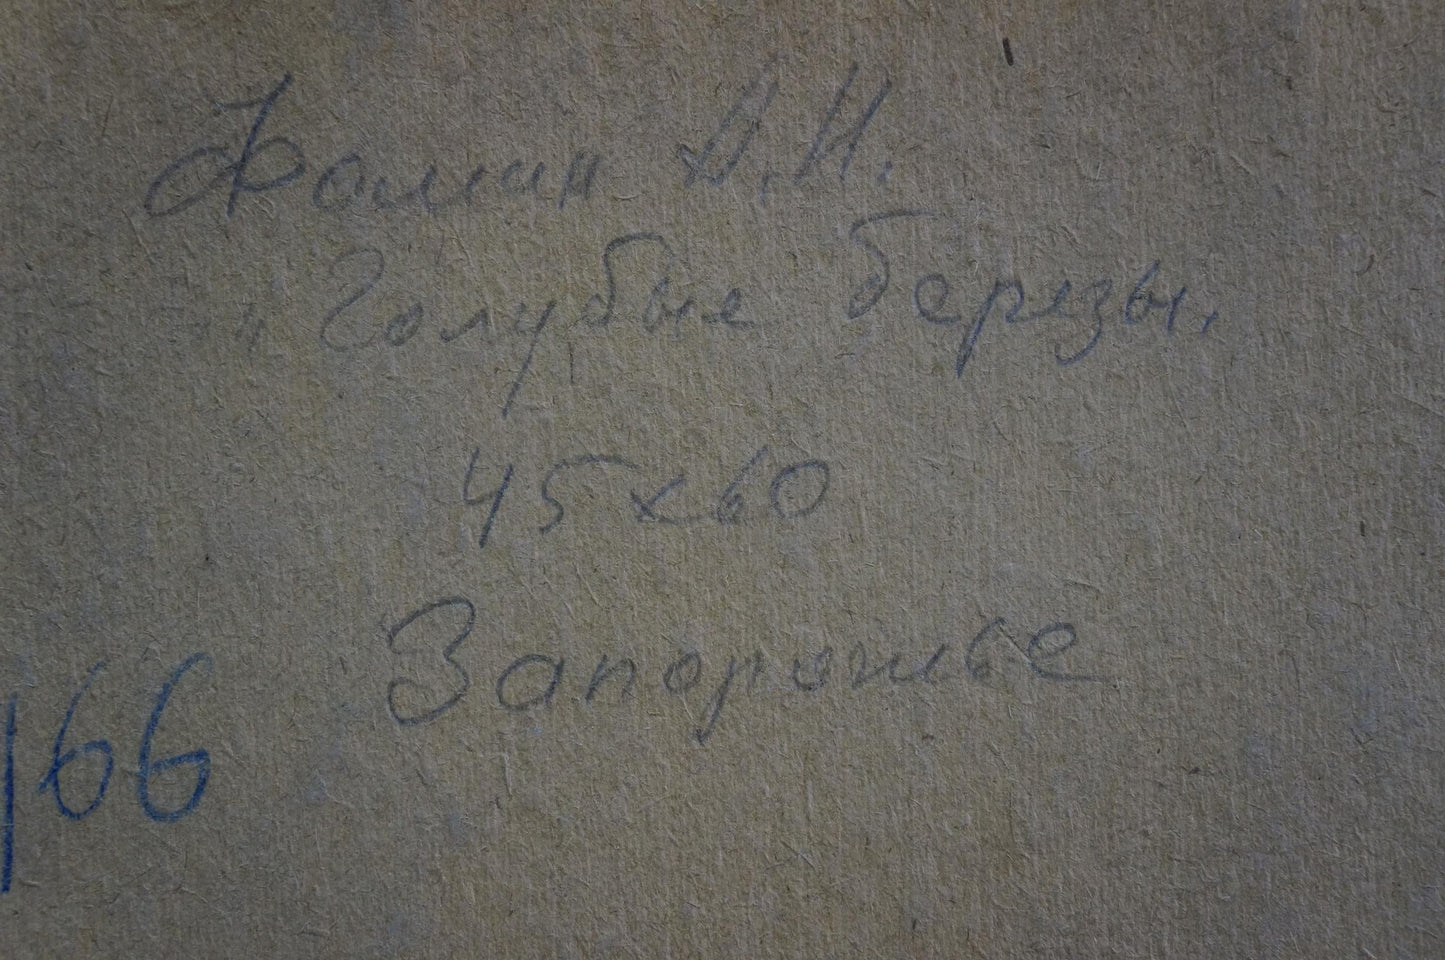 Фомин А.И.
" Голубые березы.
45х60
Запорожье
166